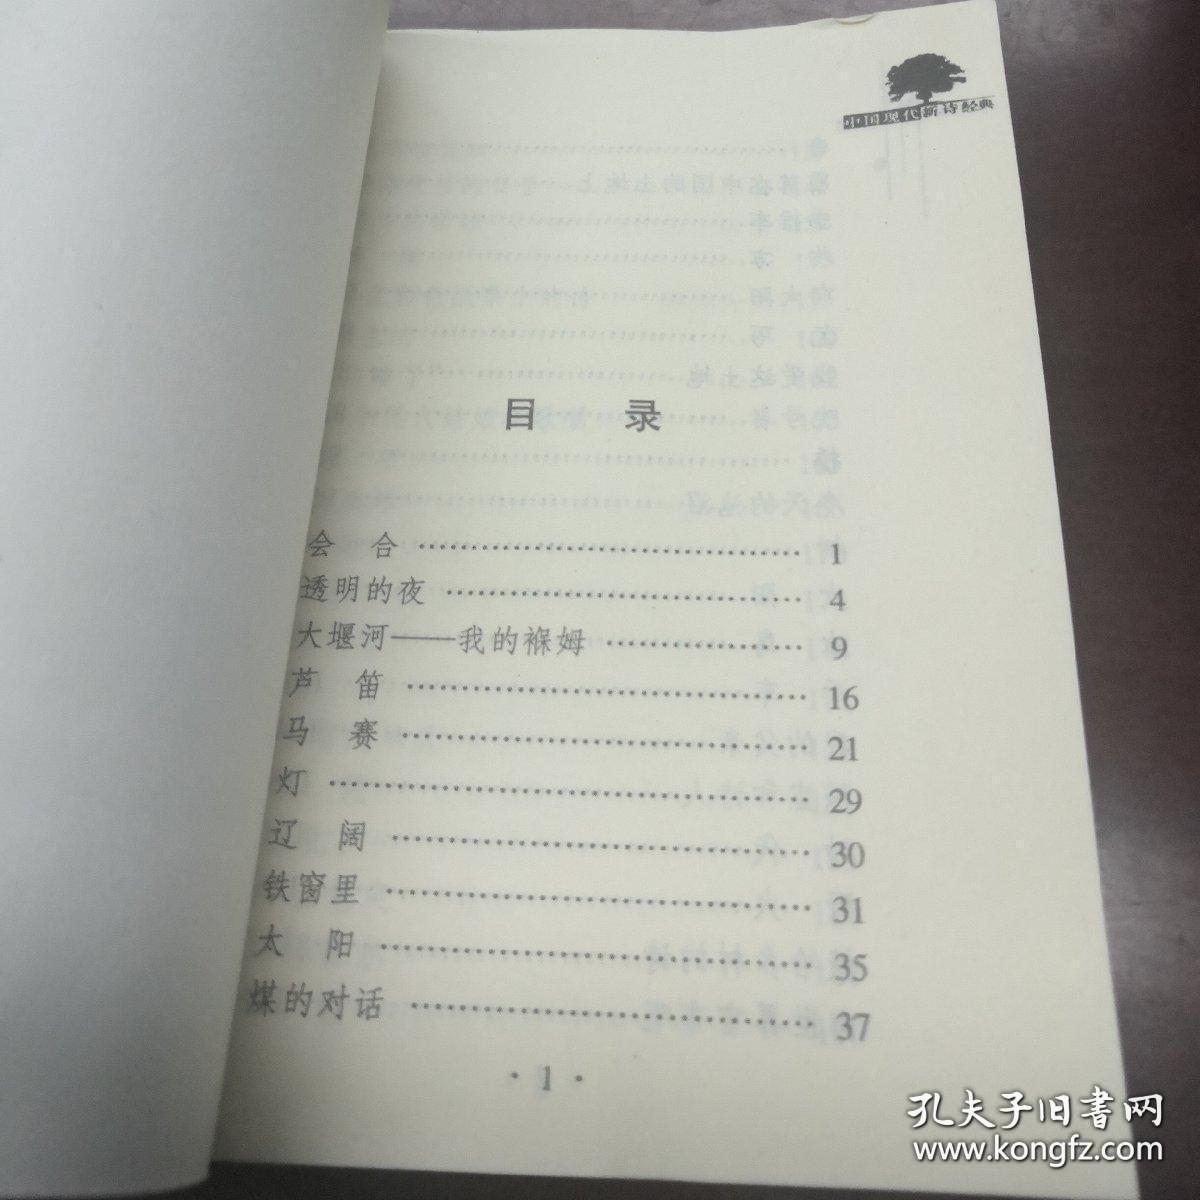 中国现代新诗经典
目 录
会 合 …………………………………… 1
透明的夜 ………………………………… 4
大堰河——我的褓姆 ………………… 9
芦 笛 …………………………………… 16
马 赛 …………………………………… 21
灯 ………………………………………… 29
辽 阔 …………………………………… 30
铁窗里 …………………………………… 31
太 阳 …………………………………… 35
煤的对话 ………………………………… 37
· 1 ·
孔夫子旧书网
www.kongfz.com